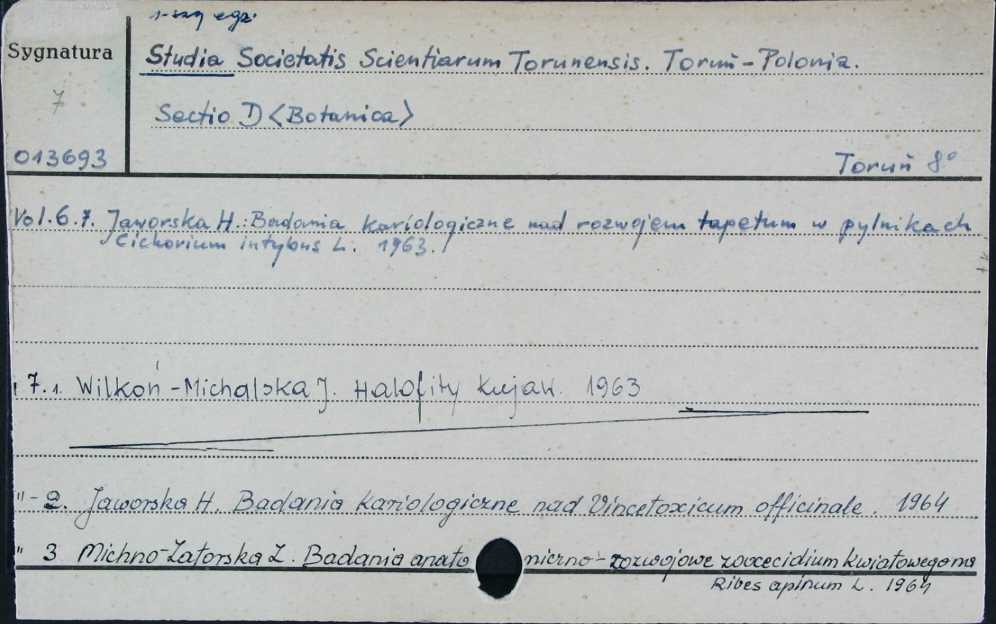 1-szy egz.
Sygnatura
Studia Societatis Scientiarum Torunensis. Toruń-Polonia.
7
Sectio D <Botanica>
013693
Toruń 8°
Vol. 6.7. Jaworska H.: Badania kariologiczne nad rozwojem tapetum w pylnikach
Cichorium intybus L. 1963.
7.1. Wilkoń-Michalska J. Halofity Kujaw. 1963
"-2. Jaworska H. Badania kariologiczne nad Vincetoxicum officinale. 1964
" 3 Michno-Zatorska Z. Badania anatomiczno-rozwojowe zoocecidium kwiatowego na
Ribes apinum L. 1964